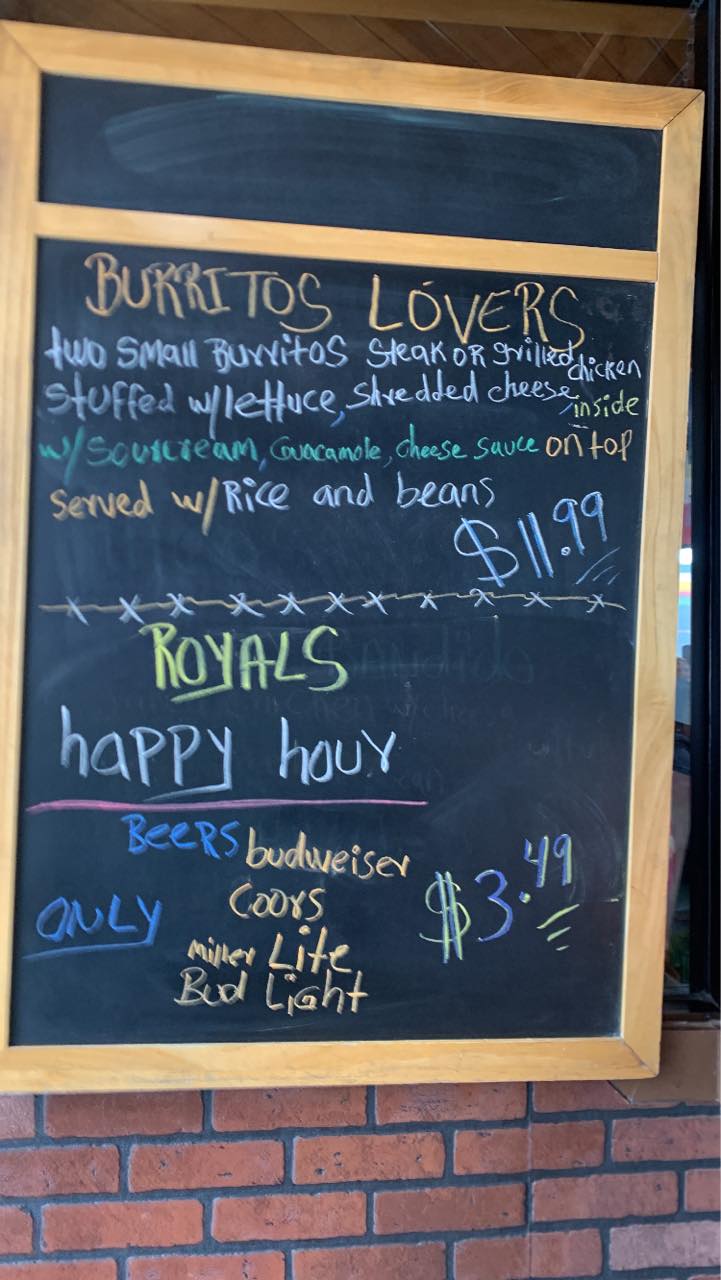 BURRITOS LOVERS
two small Burritos Steak OR grilled chicken
stuffed w/lettuce, shredded cheese, inside
w/sourcream, Guacamole, cheese sauce on top
served w/Rice and beans
$11.99
ROYALS
happy hour
BEERS budweiser
Coors
ONLY
$3.49
Miller Lite
Bud Light